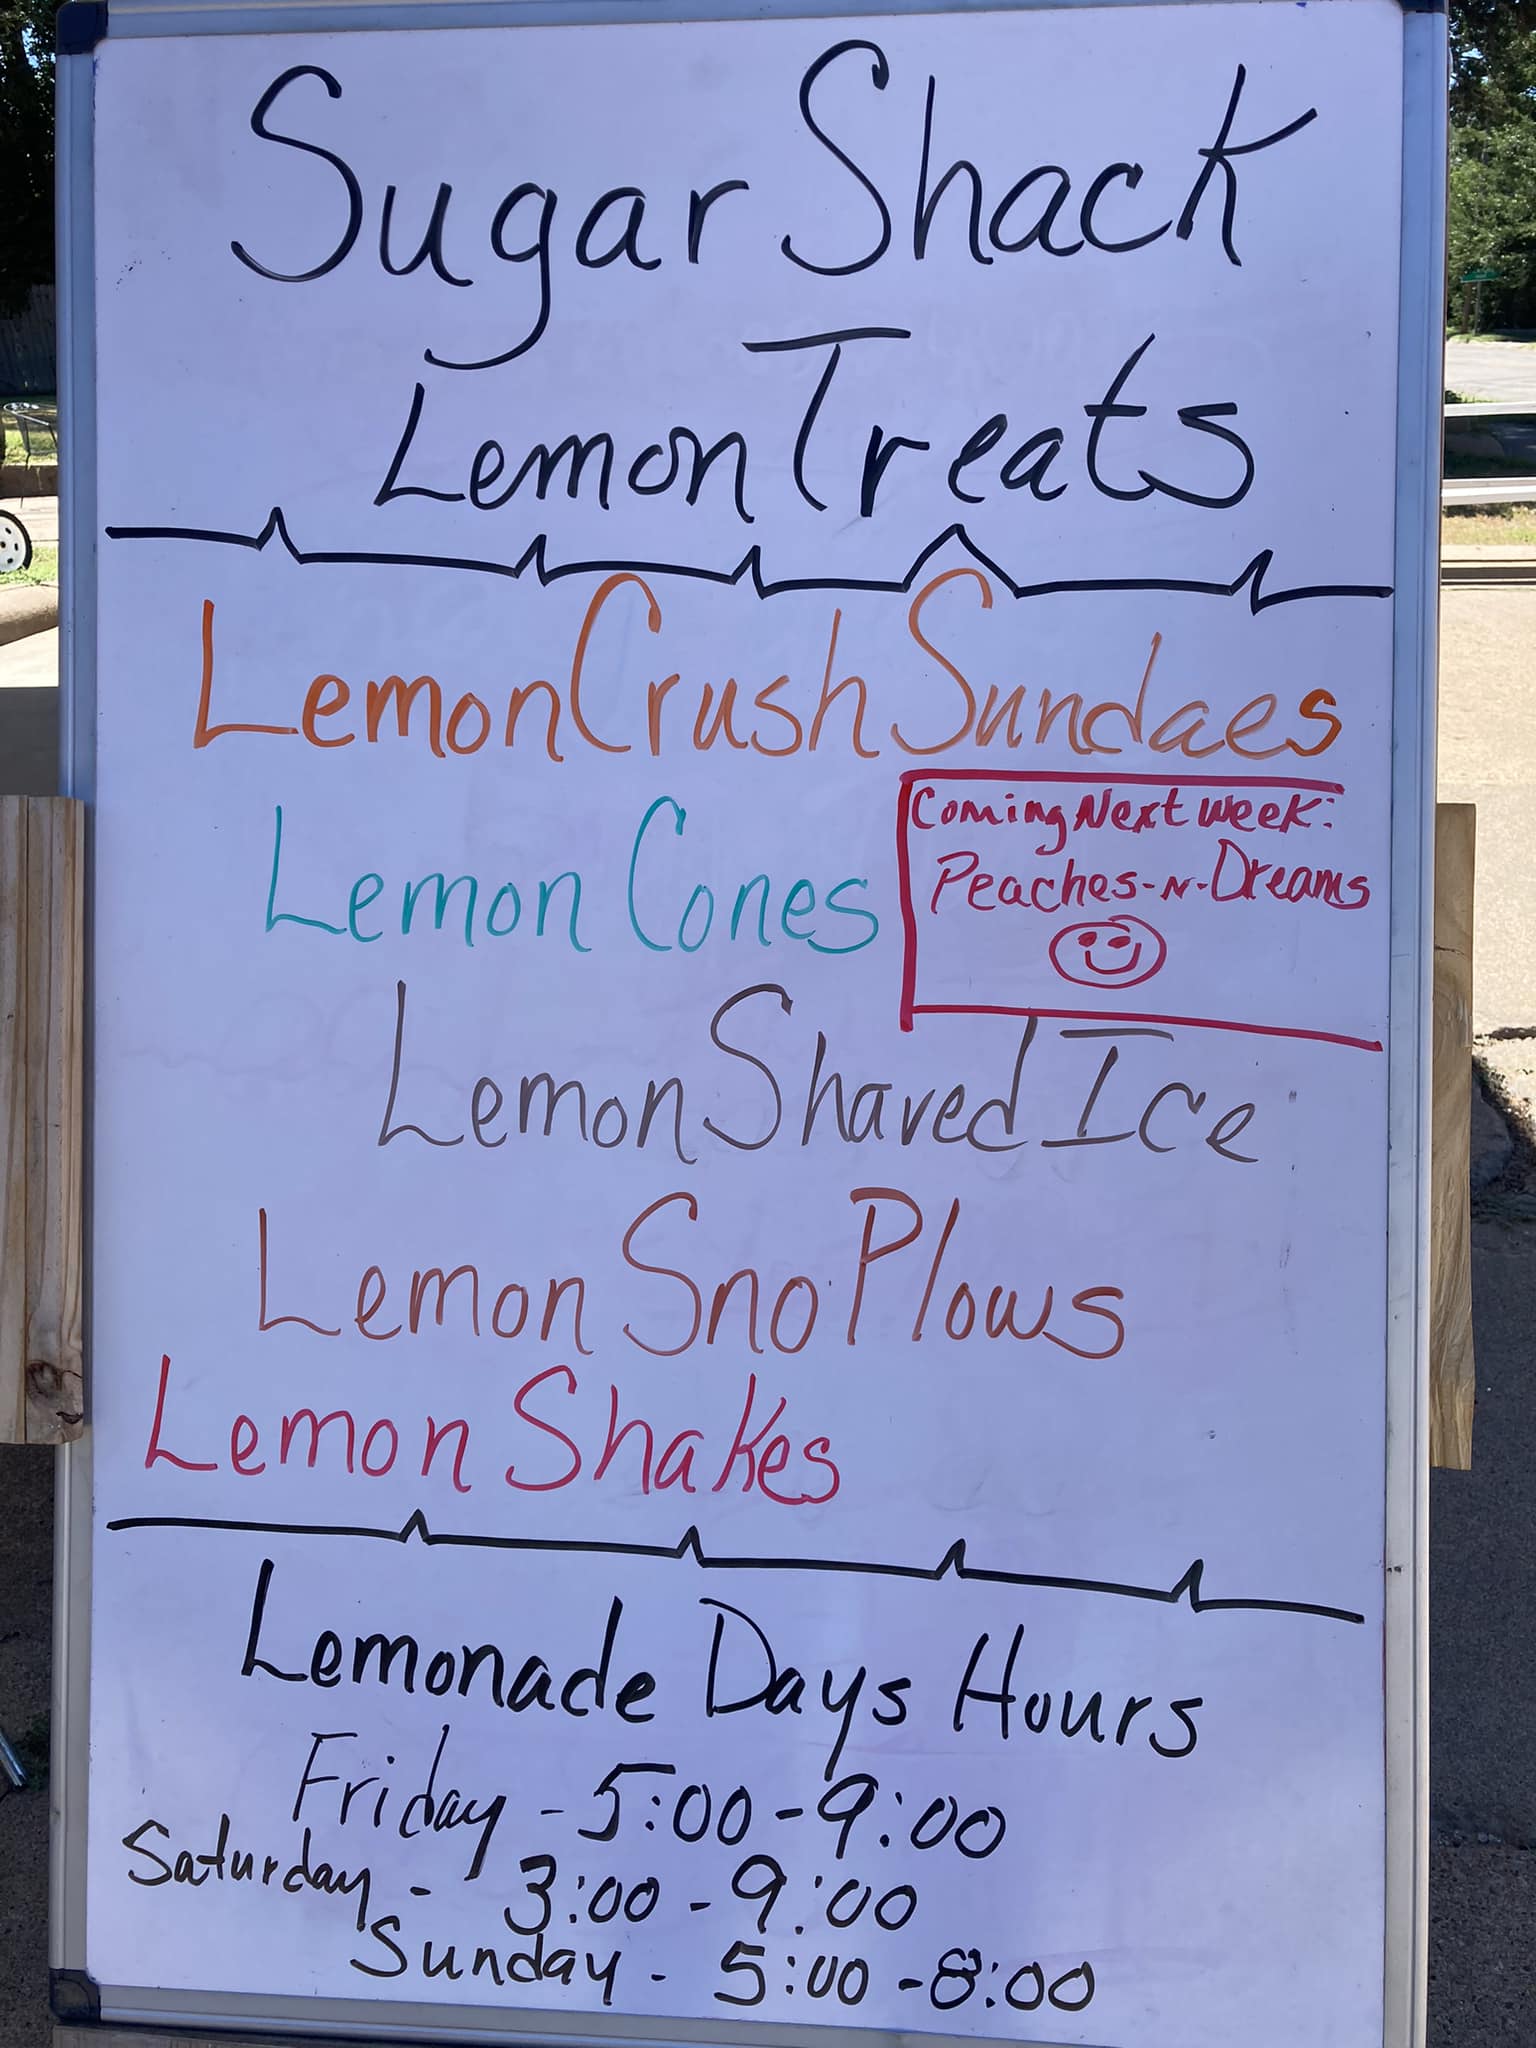 Sugar Shack
Lemon Treats
Lemon Crush Sundaes
Lemon Cones
Coming Next Week:
Peaches-N-Dreams
Lemon Shaved Ice
Lemon Sno Plows
Lemon Shakes
Lemonade Days Hours
Friday - 5:00 - 9:00
Saturday - 3:00 - 9:00
Sunday - 5:00 - 8:00